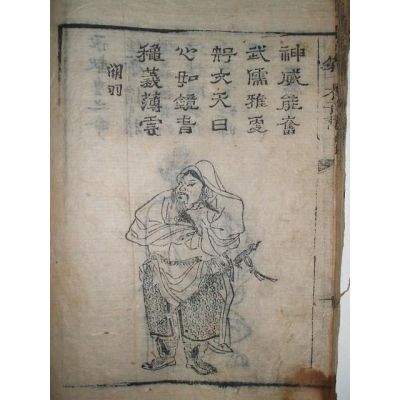 神威能奮
武儒雅更
知文天日
心如鏡春
穐義薄雲
關羽